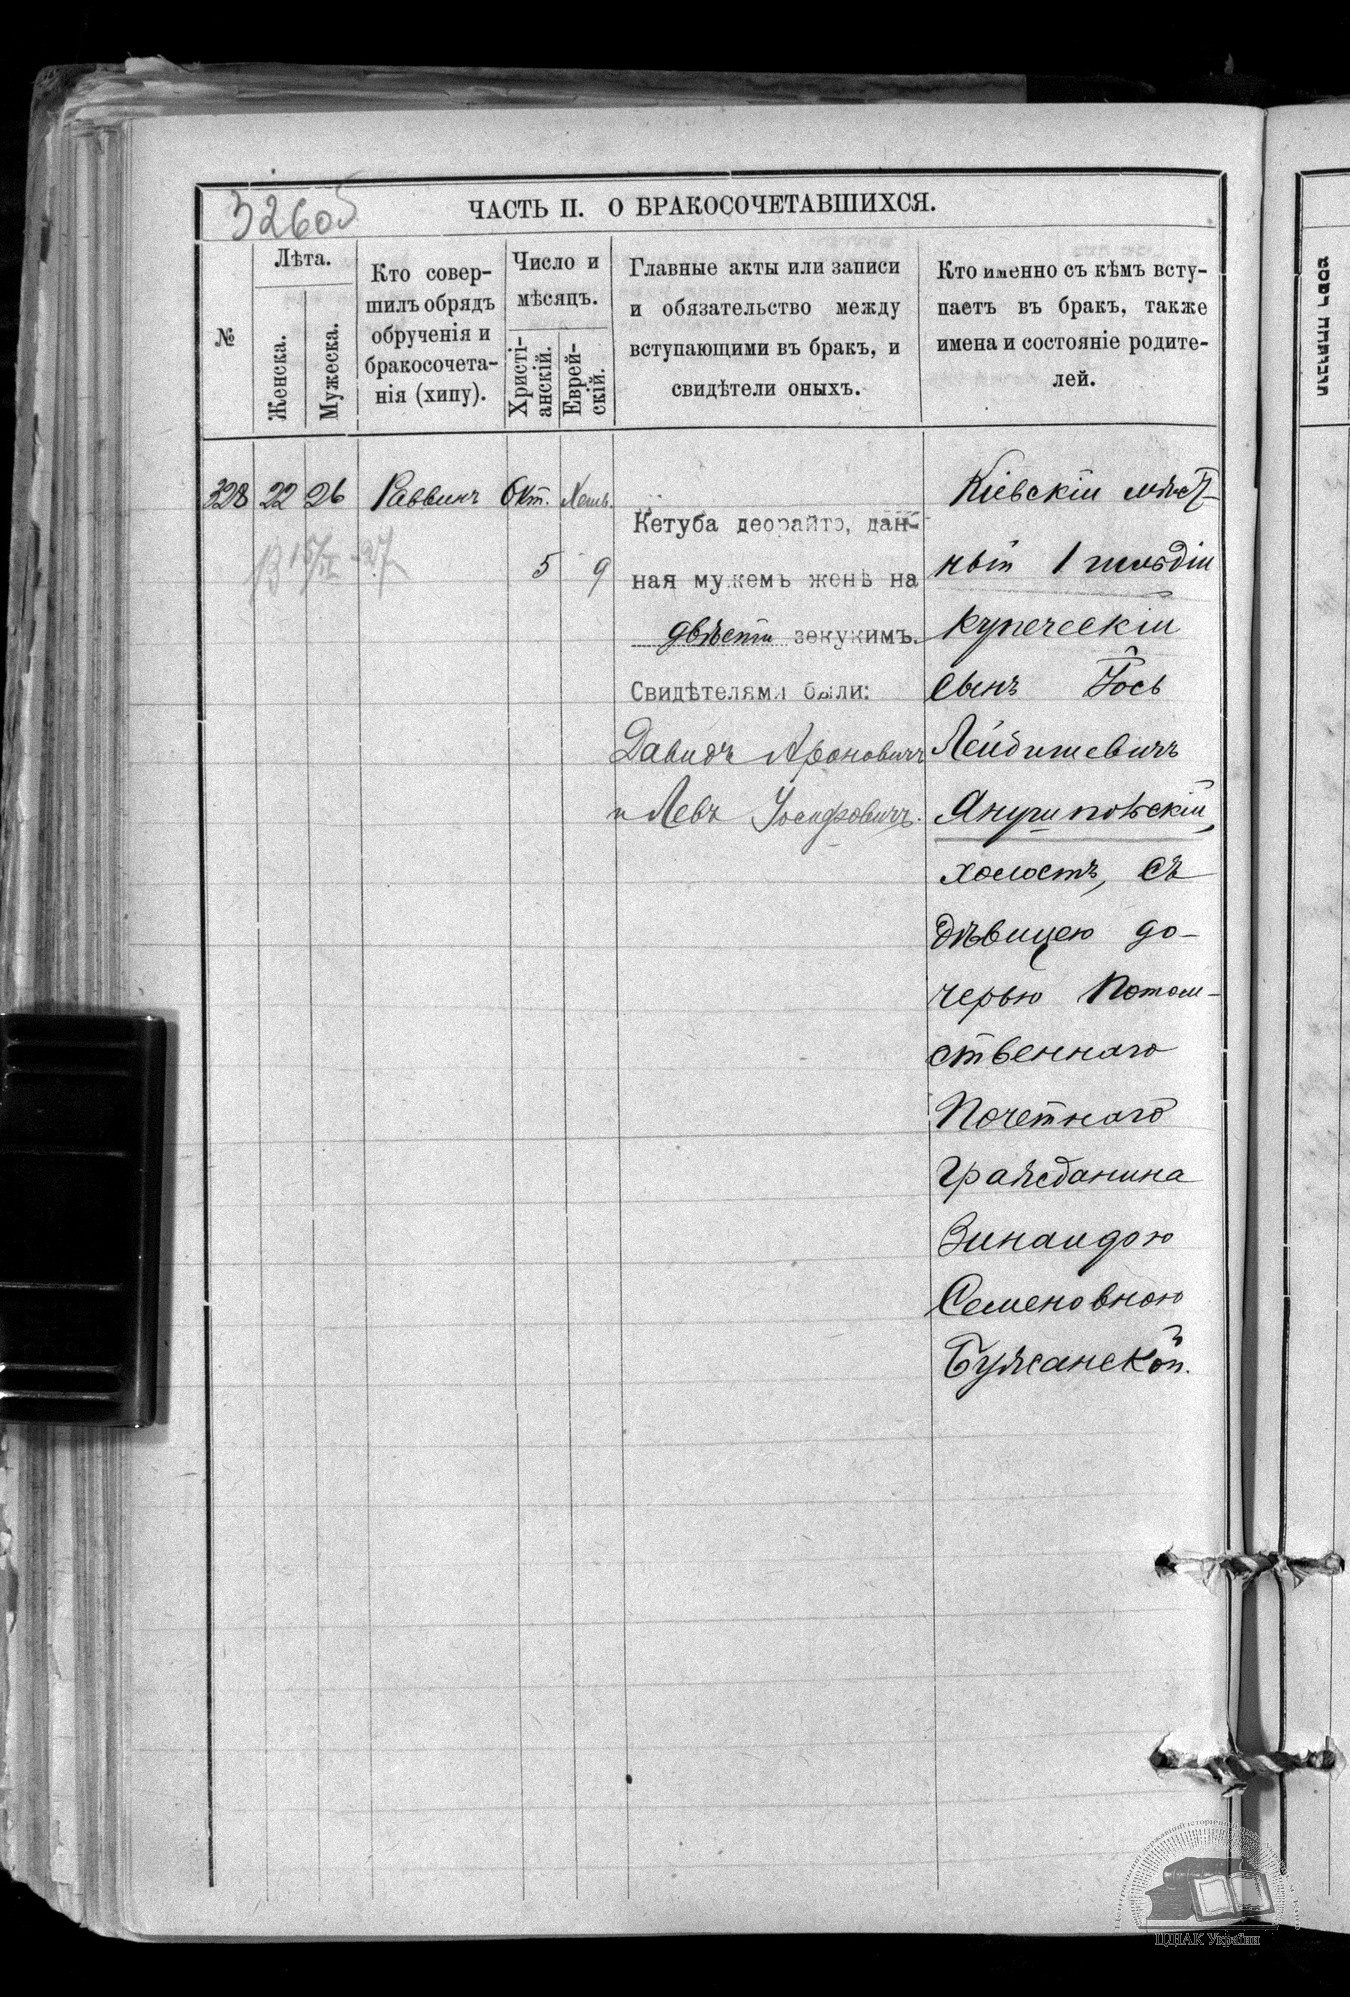 32605
ЧАСТЬ II. О БРАКОСОЧЕТАВШИХСЯ.
№
Лѣта.
Женска.
Мужеска.
Кто совер-
шилъ обрядъ
обрученія и
бракосочета-
нія (хипу).
Число и
мѣсяцъ.
Христі-
анскій.
Еврей-
скій.
Главные акты или записи
и обязательство между
вступающими въ бракъ, и
свидѣтели оныхъ.
Кто именно съ кѣмъ всту-
паетъ въ бракъ, также
имена и состояніе родите-
лей.
328
22
26
Раввинъ
Окт.
5
Хешв.
9
Кетуба деорайто, дан-
ная мужемъ женѣ на
двѣсти зекукимъ.
Свидѣтелями были:
Давидъ Ароновичъ
и Левъ Іосифовичъ.
Кіевскій
1 гильдіи
купеческій
сынъ Іось
Лейбишевичъ
Янушпольскій,
холостъ, съ
дѣвицею до-
черью Потом-
ственнаго
Почетнаго
Гражданина
Зинаидою
Семеновною
Бужанской.
ЦДІАК України